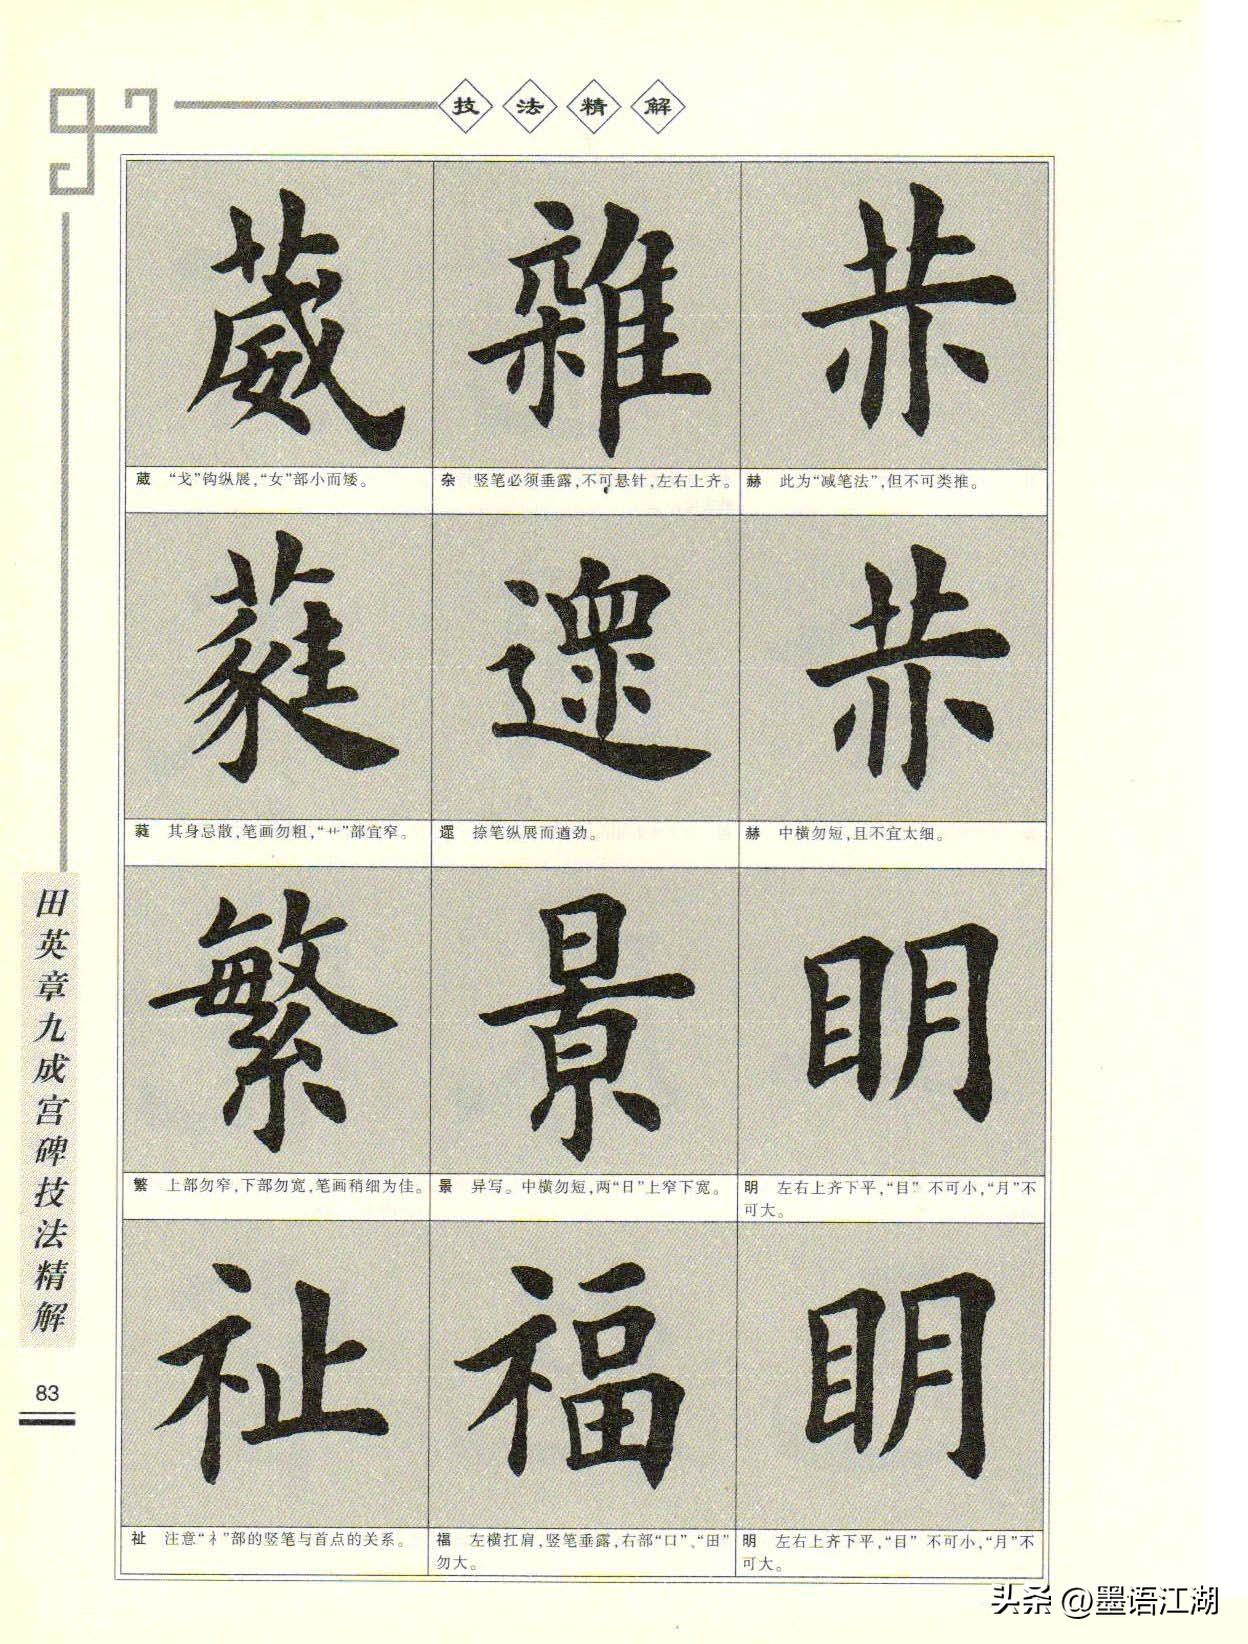 技法精解
赫
赫 此为“减笔法”,但不可类推。
赫
赫 中横勿短,且不宜太细。
明
明 左右上齐下平,“目”不可小,“月”不
可大。
明
明 左右上齐下平,“目”不可小,“月”不
可大。
雜
杂 竖笔必须垂露,不可悬针,左右上齐。
遝
遝 捺笔纵展而遒劲。
景
景 异写。中横勿短,两“日”上窄下宽。
福
福 左横扛肩,竖笔垂露,右部“口”、“田”
勿大。
葳
葳 “戈”钩纵展,“女”部小而矮。
蕤
蕤 其身忌散,笔画勿粗,“艹”部宜窄。
繁
繁 上部勿窄,下部勿宽,笔画稍细为佳。
祉
祉 注意“礻”部的竖笔与首点的关系。
田英章九成宫碑技法精解
83
头条 @墨语江湖